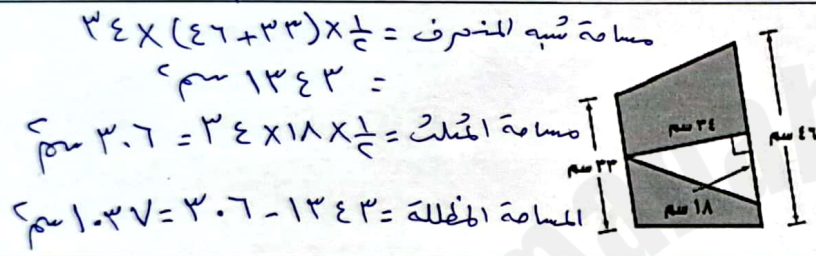 مساحة شبه المنحرف = ½ × (٣٣ + ٤٦) × ٣٤
= ١٣٤٣ سم²
مساحة المثلث = ½ × ١٨ × ٣٤ = ٣٠٦ سم²
المساحة المظللة = ١٣٤٣ - ٣٠٦ = ١٠٣٧ سم²
٣٤ سم
٤٦ سم
٣٣ سم
١٨ سم